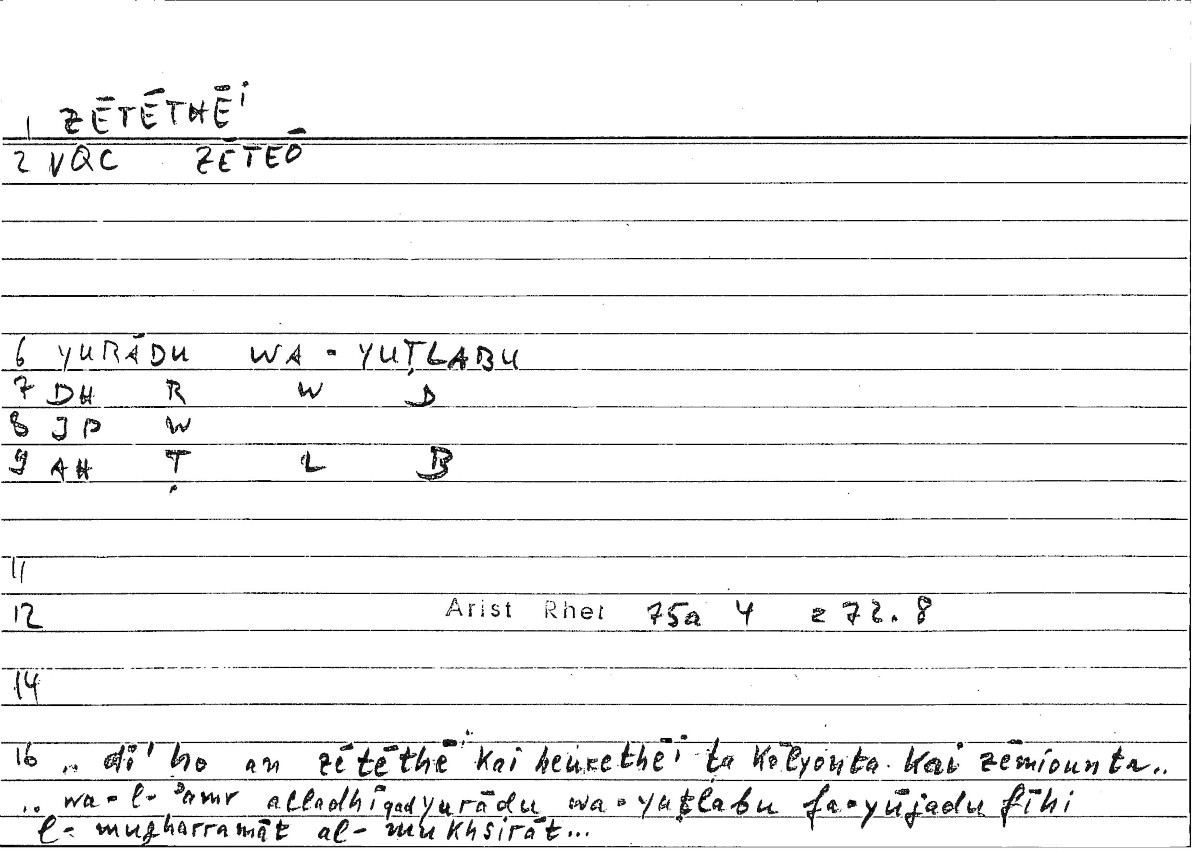 1 ZĒTĒTHĒⁱ
2 VQC ZĒTEŌ
6 YURĀDU WA - YUṬLABU
7 DH R W D
8 JP W
9 AH Ṭ L B
11
12 Arist Rhet 75a 4 = 72.8
14
16 .. di' ho an zētēthēⁱ kai heurethēⁱ ta kōlyonta kai zēmiounta..
.. wa-l-ʾamr alladhī qad yurādu wa-yuṭlabu fa-yūjadu fīhi
l-mugharramāt al-mukhsirāt...